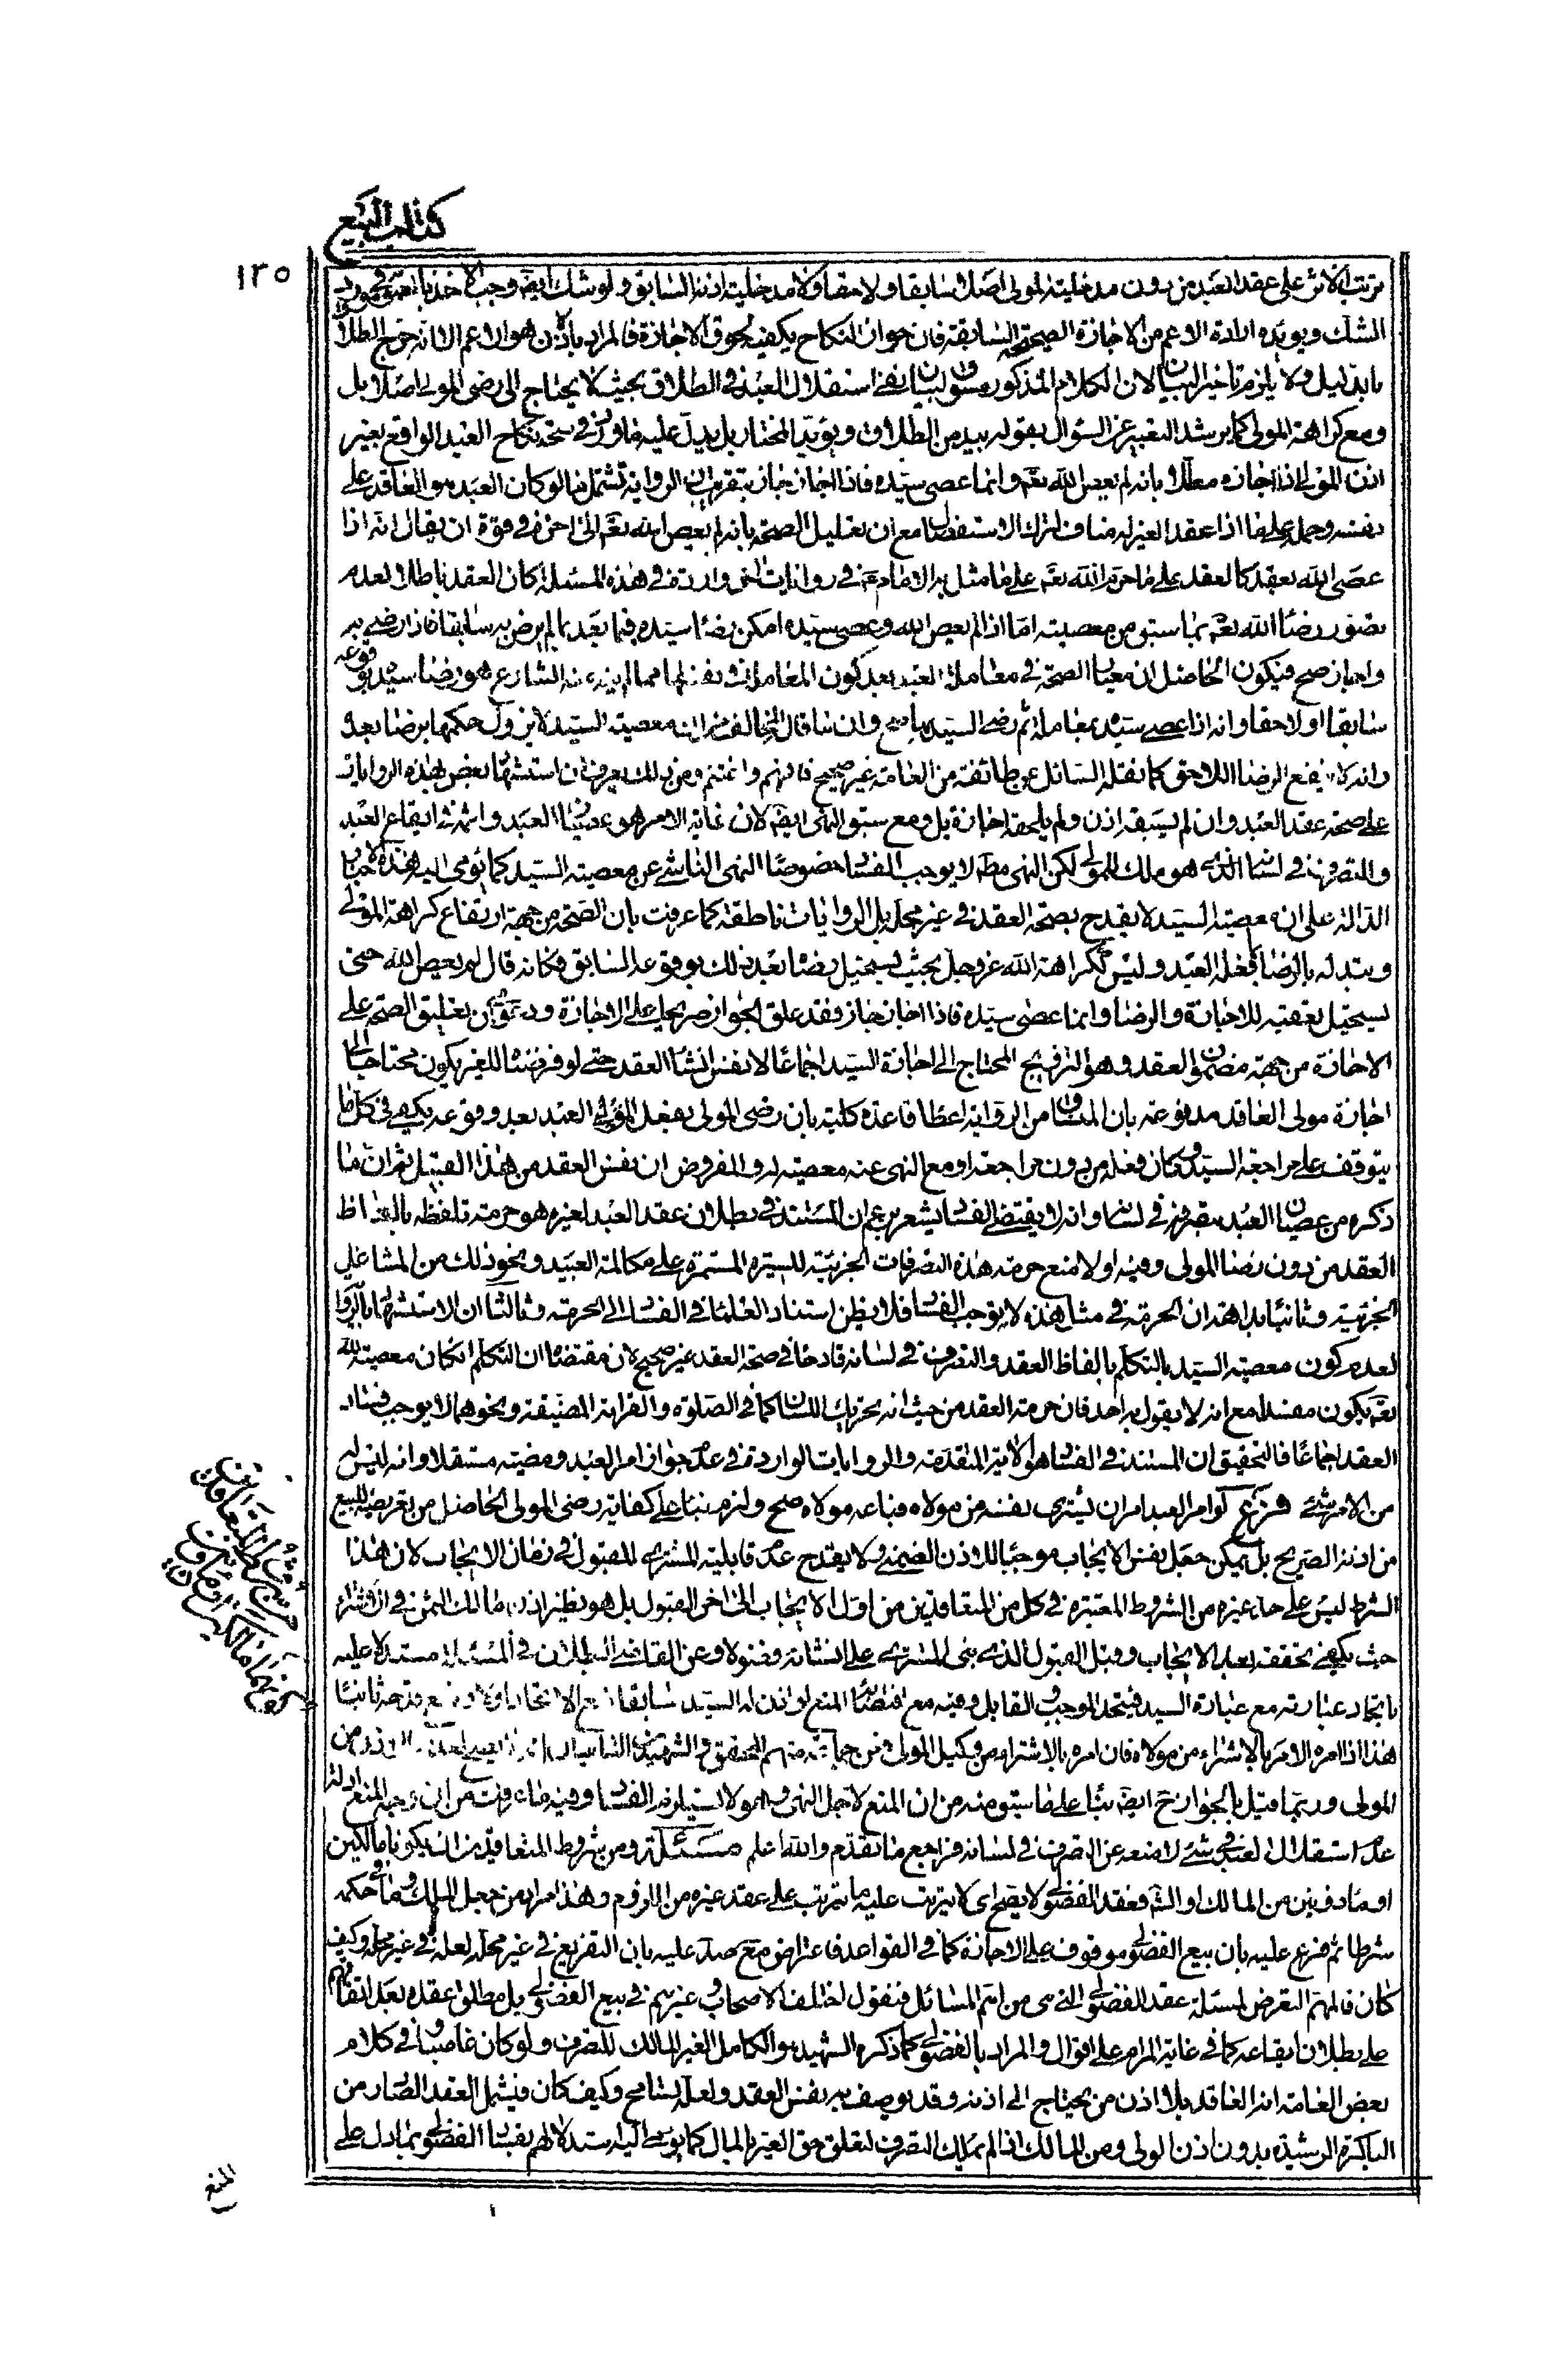 كتاب البيع
١٢٥
ترتب الاثر على عقد العبد من دون مدخلية المولى اصلا سابقا ولاحقا ولا مدخلية اذنه السابق ولو شك ايضا وجب الاخذ باصالة عموم
الشك ويؤيده ارادة الاعم من الاجازة الصريحة السابقة فان جواز النكاح يكفيه لحوق الاجازة فالمراد بالاذن هو الاعم الا انه خرج الطلاق
بالدليل ولا يلزم تاخير البيان لان الكلام المذكور مسوق لبيان نفى استقلال العبد فى الطلاق بحيث لا يحتاج الى رضى المولى اصلا بل
ومع كراهة المولى كما يرشد التعبير عن السؤال بقوله بيد من الطلاق ويؤيد المختار بل يدل عليه ما ورد فى صحة نكاح العبد الواقع بغير
اذن المولى اذا اجازه معللا بانه لم يعص الله تعم وانما عصى سيده فاذا اجاز جاز بتقريب ان الرواية تشتمل ما لو كان العبد هو العاقد على
نفسه وحمله على ما اذا عقد الغير له مناف لترك الاستفصال مع ان تعليل الصحة بانه لم يعص الله تعم الى اخره فى قوة ان يقال انه اذا
عصى الله بعقد كالعقد على ما حرم الله تعم على ما مثل به الامام ع فى روايات اخر واردة فى هذه المسئلة كان العقد باطلا لعدم
تصور رضا الله تعم بما سبق من معصيته اما اذا لم يعص الله وعصى سيده امكن رضا سيده فيما بعد بما لم يرض به سابقا فاذا رضى به
واجاز صح فيكون الحاصل ان معيار الصحة فى معاملة العبد بعد كون المعاملة فى نفسها مما لم ينه عنه الشارع هو رضا سيده بوقوعه
سابقا او لاحقا وانه اذا عصى سيده بمعاملة ثم رضى السيد بها صح وان ما قاله المخالف من ان معصية السيد لا يزول حكمها برضاه بعده
وانه لا ينفع الرضا اللاحق كما نقله السائل عن طائفة من العامة غير صحيح فافهم واغتنم ومن ذلك يعرف ان استشهاد بعض بهذه الروايات
على صحة عقد العبد وان لم يسبقه اذن ولم يلحقه اجازة بل ومع سبق النهى ايضا لان غاية الامر هو عصيان العبد واثمه فى ايقاع العقد
والتصرف فى لسانه الذى هو ملك للمولى لكن النهى مطلقا لا يوجب الفساد خصوصا النهى الناشى عن معصية السيد كما يؤمى اليه هذه الاخبار
الدالة على ان معصية السيد لا يقدح بصحة العقد فى غير محله بل الروايات ناطقة كما عرفت بان الصحة من جهة ارتفاع كراهة المولى
وتبدله بالرضا بفعل العبد وليس ككراهة الله عز وجل بحيث يستحيل رضاه بعد ذلك بوقوعه السابق فكانه قال لم يعص الله حتى
يستحيل تعقبه للاجازة والرضا وانما عصى سيده فاذا اجاز جاز فقد علق الجواز صريحا على الاجازة ودعوى ان تعليق الصحة على
الاجازة من جهة مضمون العقد وهو التزويج المحتاج الى اجازة السيد اجماعا لا نفس انشاء العقد حتى لو فرضناه للغير يكون محتاجا الى
اجازة مولى العاقد مدفوعة بان المنساق من الرواية اعطاء قاعدة كلية بان رضى المولى بفعل العبد بعد وقوعه يكفى فى كل ما
يتوقف على مراجعة السيد وكان فعله من دون مراجعة او مع النهى عنه معصية له والمفروض ان نفس العقد من هذا القبيل ثم ان ما
ذكره من عصيان العبد بتصرفه فى لسانه وانه لا يقتضى الفساد يشعر بزعم ان المستند فى بطلان عقد العبد لغيره هو حرمة تلفظه بالفاظ
العقد من دون رضا المولى وفيه اولا منع حرمة هذه التصرفات الجزئية للسيرة المستمرة على مكالمة العبيد ونحو ذلك من المشاغل
الجزئية وثانيا بداهة ان الحرمة فى مثل هذه لا يوجب الفساد فلا يظن استناد العلماء فى الفساد الى الحرمة وثالثا ان الاستشهاد بالروايات
لعدم كون معصية السيد بالتكلم بالفاظ العقد والتصرف فى لسانه قادحا فى صحة العقد غير صحيح لان مقتضاه ان التكلم ان كان معصية لله
تعم يكون مفسدا مع انه لا يقول به احد فان حرمة العقد من حيث انه تحريك اللسان كما فى الصلوة والقرائة المضيقة ونحوهما لا يوجب فساد
العقد اجماعا فالتحقيق ان المستند فى الفساد هو الاية المتقدمة والروايات الواردة فى عدم جواز امر العبد ومضيه مستقلا وانه ليس له
من الامر شئ فرع لو امر العبد امر ان يشترى نفسه من مولاه فباعه مولاه صح ولزم بناء على كفاية رضى المولى الحاصل من تعريضه للبيع
من اذنه الصريح بل يمكن جعل نفس الايجاب موجبا للاذن الضمنى ولا يقدح عدم قابلية المشترى للقبول فى زمان الايجاب لان هذا
الشرط ليس على حد غيره من الشروط المعتبرة فى كل من المتعاقدين من اول الايجاب الى اخر القبول بل هو نظير اذن مالك الثمن فى الاشتراء
حيث يكفى تحققه بعد الايجاب وقبل القبول الذى بنى المشترى على انشائه فضولا وعن القاضى البطلان فى المسئلة مستدلا عليه
باتحاد عبارته مع عبارة السيد فيتحد الموجب والقابل وفيه مع اقتضائه المنع لو اذن له السيد سابقا منع الاتحاد اولا ومنع قدحه ثانيا
هذا اذا امره الامر بالاشتراء من مولاه فان امره بالاشتراء من وكيل المولى فعن جماعة منهم المحقق والشهيد الثانى انه لا يصح لعدم الاذن من
المولى وربما قيل بالجواز ح ايضا بناء على ما سبق منه من ان المنع لاجل النهى وهو لا يستلزم الفساد وفيه ما عرفت من ان وجه المنع ادلة
عدم استقلال العبد فى شئ لا منعه عن التصرف فى لسانه فراجع ما تقدم والله اعلم مسئلة ومن شروط المتعاقدين ان يكونا مالكين
او ماذونين من المالك او الشارع فعقد الفضولى لا يصح اى لا يترتب عليه ما يترتب على عقد غيره من اللزوم وهذا مراد من جعل الملك وما فى حكمه
شرطا ثم فرع عليه بان بيع الفضولى موقوف على الاجازة كما فى القواعد فاعتراض جامع صد عليه بان التفريع فى غير محله لعله فى غير محله وكيف
كان فالمهم التعرض لمسئلة عقد الفضولى التى هى من اهم المسائل فنقول اختلف الاصحاب وغيرهم فى بيع الفضولى بل مطلق عقده بعد اتفاقهم
على بطلان ايقاعه كما فى غاية المرام على اقوال والمراد بالفضولى كما ذكره الشهيد هو الكامل الغير المالك للتصرف ولو كان غاصبا وفى كلام
بعض العامة انه العاقد بلا اذن من يحتاج الى اذنه وقد يوصف به نفس العقد ولعله تسامح وكيف كان فيشمل العقد الصادر من
الباكرة الرشيدة بدون اذن الولى ومن المالك اذا لم يملك التصرف لتعلق حق الغير بالمال كما يومى اليه استدلالهم لفساد الفضولى بما دل على
المنع